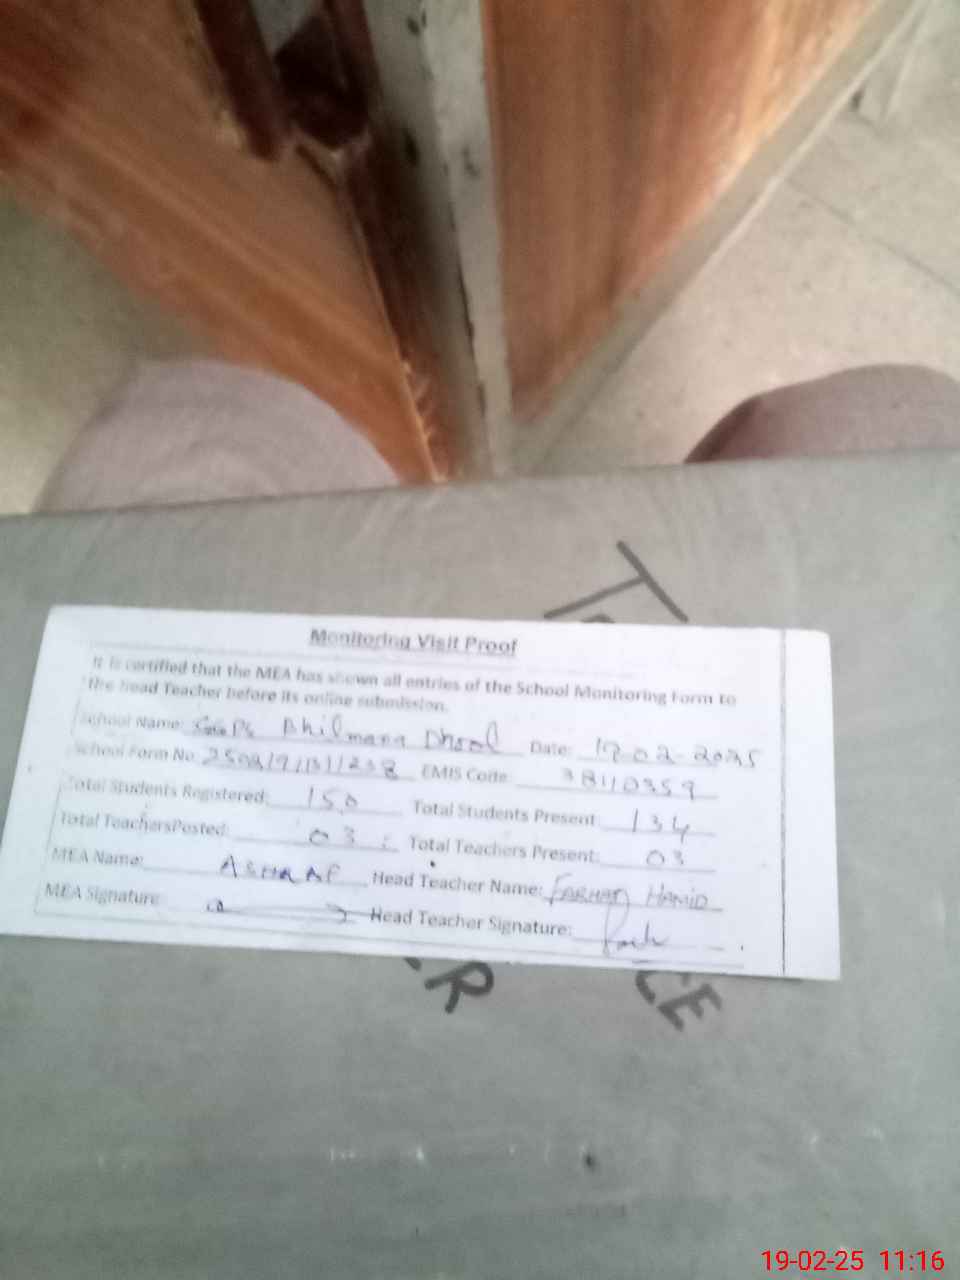 Monitoring Visit Proof
It is certified that the MEA has shown all entries of the School Monitoring Form to
the Head Teacher before its online submission.
School Name: Bhilmana Dhool Date: 19-02-2025
School Form No. EMIS Code: 38110359
Total Students Registered: 150 Total Students Present: 134
Total TeachersPosted: 03 Total Teachers Present: 03
MEA Name: ASHRAF Head Teacher Name: FARHAN HAMID
MEA Signature: Head Teacher Signature:
19-02-25 11:16